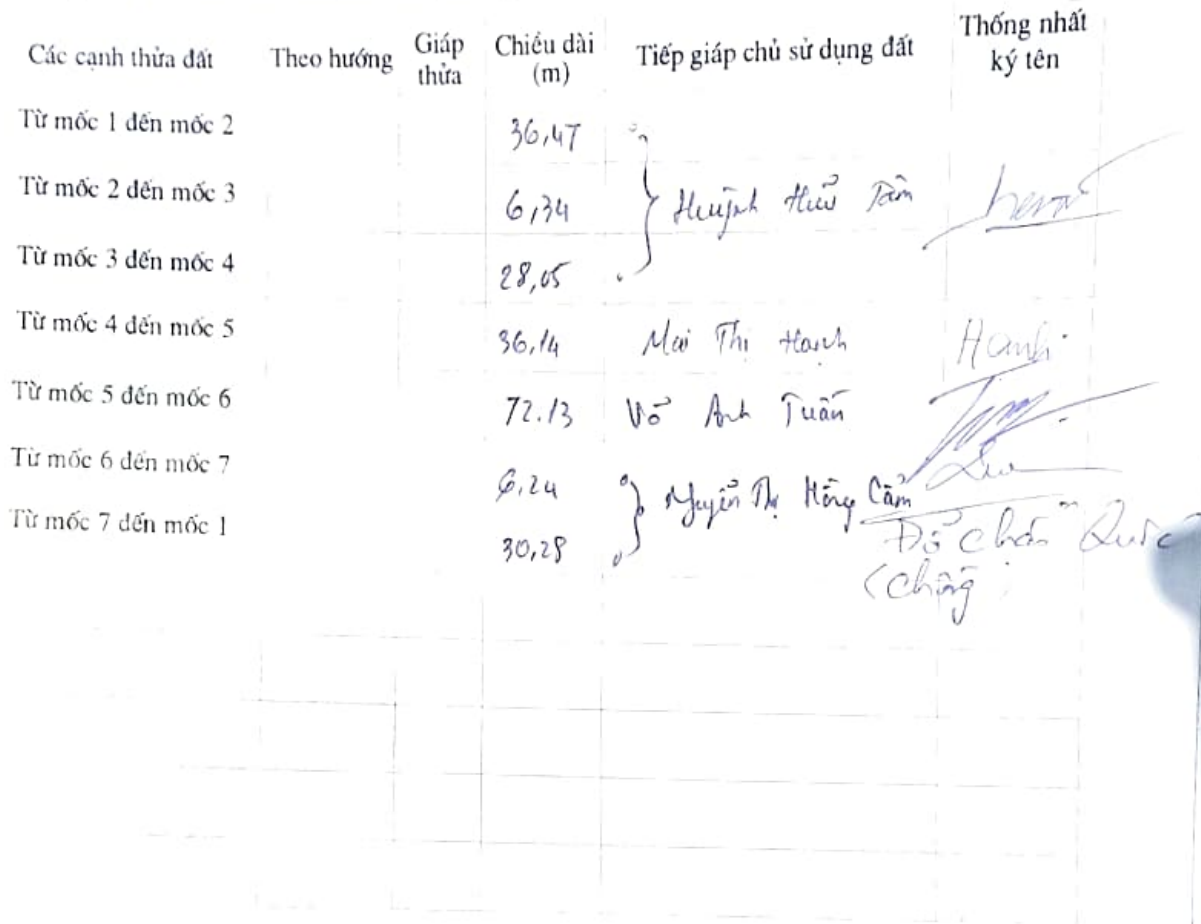 Các cạnh thửa đất Theo hướng Giáp thửa Chiều dài (m) Tiếp giáp chủ sử dụng đất Thống nhất ký tên
Từ mốc 1 đến mốc 2 36,47
Từ mốc 2 đến mốc 3 6,34 Huỳnh Hữu Tâm
Từ mốc 3 đến mốc 4 28,05
Từ mốc 4 đến mốc 5 36,14 Mai Thị Hạnh Hạnh
Từ mốc 5 đến mốc 6 72.13 Võ Anh Tuấn
Từ mốc 6 đến mốc 7 6,24 Nguyễn Thị Hồng Cẩm
Từ mốc 7 đến mốc 1 30,28
Đỗ Chấn Quốc
(chồng)